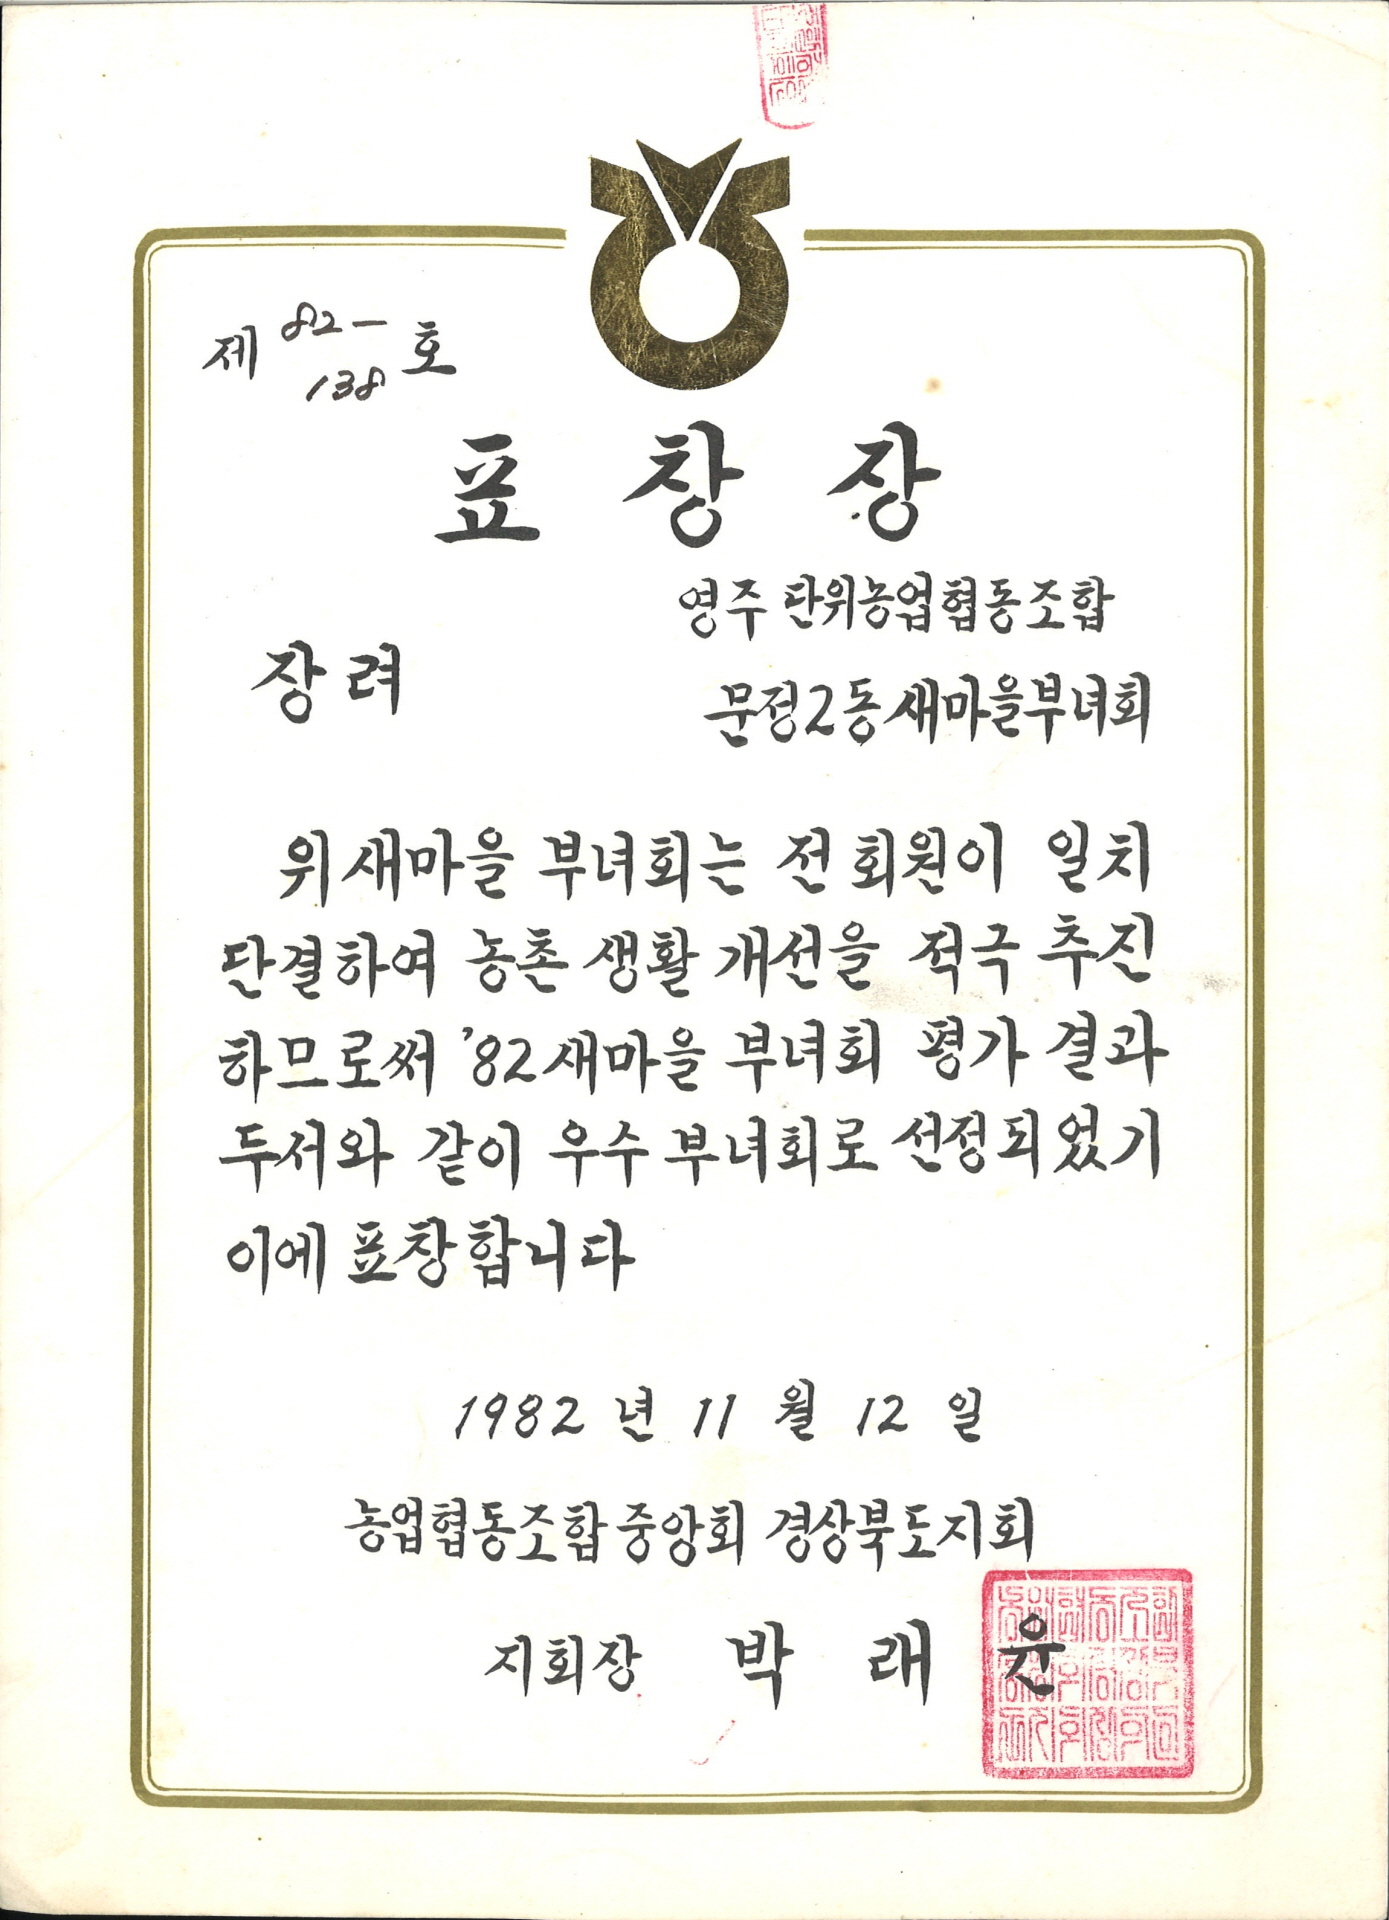 제 82-138 호
표 창 장
영주 단위농업협동조합
장려
문정2동새마을부녀회
위 새마을 부녀회는 전 회원이 일치
단결하여 농촌 생활 개선을 적극 추진
하므로써 '82 새마을 부녀회 평가 결과
두서와 같이 우수 부녀회로 선정되었기
이에 표창합니다
1982 년 11 월 12 일
농업협동조합중앙회 경상북도지회
지회장 박 래 윤